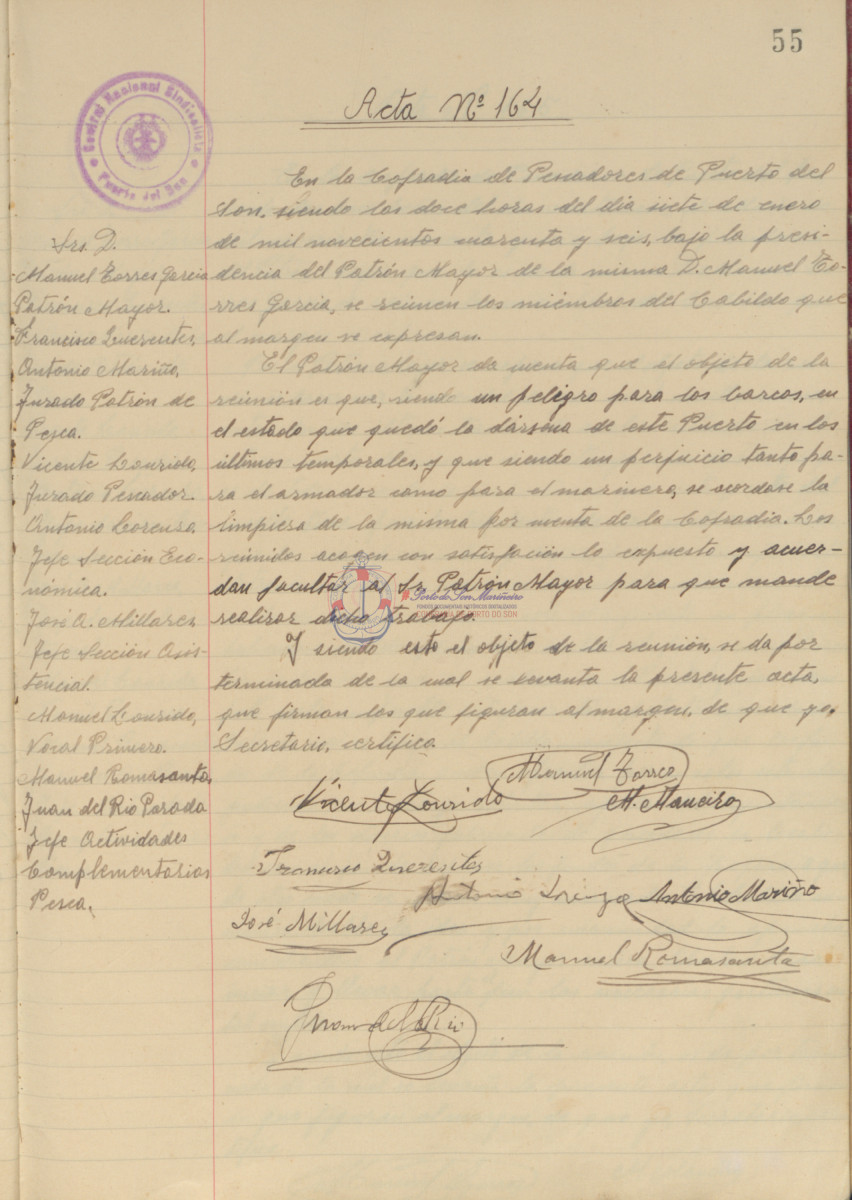 55
Central Nacional Sindicalista
Puerto del Son
Acta Nº 164
Srs. D.
Manuel Torres Garcia
Patrón Mayor.
Francisco
Antonio Mariño,
Jurado Patrón de
Pesca.
Vicente Lourido,
Jurado Pescador.
Antonio Lorenso,
Jefe Sección Eco-
nómica.
José A. Millares,
Jefe Sección Asis-
tencial.
Manuel Lourido,
Vocal Primero.
Manuel Romasanta,
Juan del Rio Parada
Jefe Actividades
Complementarias
Pesca.
En la Cofradia de Pescadores de Puerto del
Son, siendo las doce horas del dia siete de enero
de mil novecientos cuarenta y seis, bajo la presi-
dencia del Patrón Mayor de la misma D. Manuel To-
rres Garcia, se reunen los miembros del Cabildo que
al margen se expresan.
El Patrón Mayor da cuenta que el objeto de la
reunión es que, siendo un peligro para los barcos, en
el estado que quedó la dársena de este Puerto en los
últimos temporales, y que siendo un perjuicio tanto pa-
ra el armador como para el marinero, se acordase la
limpiesa de la misma por cuenta de la Cofradia. Los
reunidos acogen con satisfacción lo expuesto y acuer-
dan facultar al Sr. Patrón Mayor para que mande
realizar dicho trabajo.
Y siendo esto el objeto de la reunión, se da por
terminada de la cual se levanta la presente acta,
que firman los que figuran al margen, de que yo,
Secretario, certifico.
Porto do Son Mariñeiro
Manuel Torres
Vicente Lourido
M. Maneiro
Francisco
Antonio Lorenzo
Antonio Mariño
José Millares
Manuel Romasanta
Juan del Rio